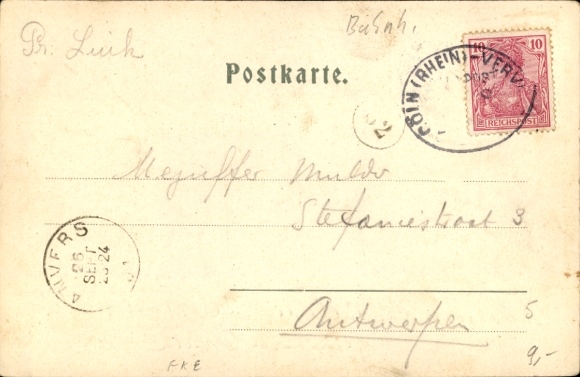 Bahnh.
Postkarte.
10
10
REICHSPOST
CÖLN (RHEIN)-VERV
Mejuffer Mulder
Stefaniestraat 3
Antwerpen
5
9,-
ANVERS
26
SEPT
23-24
FKE